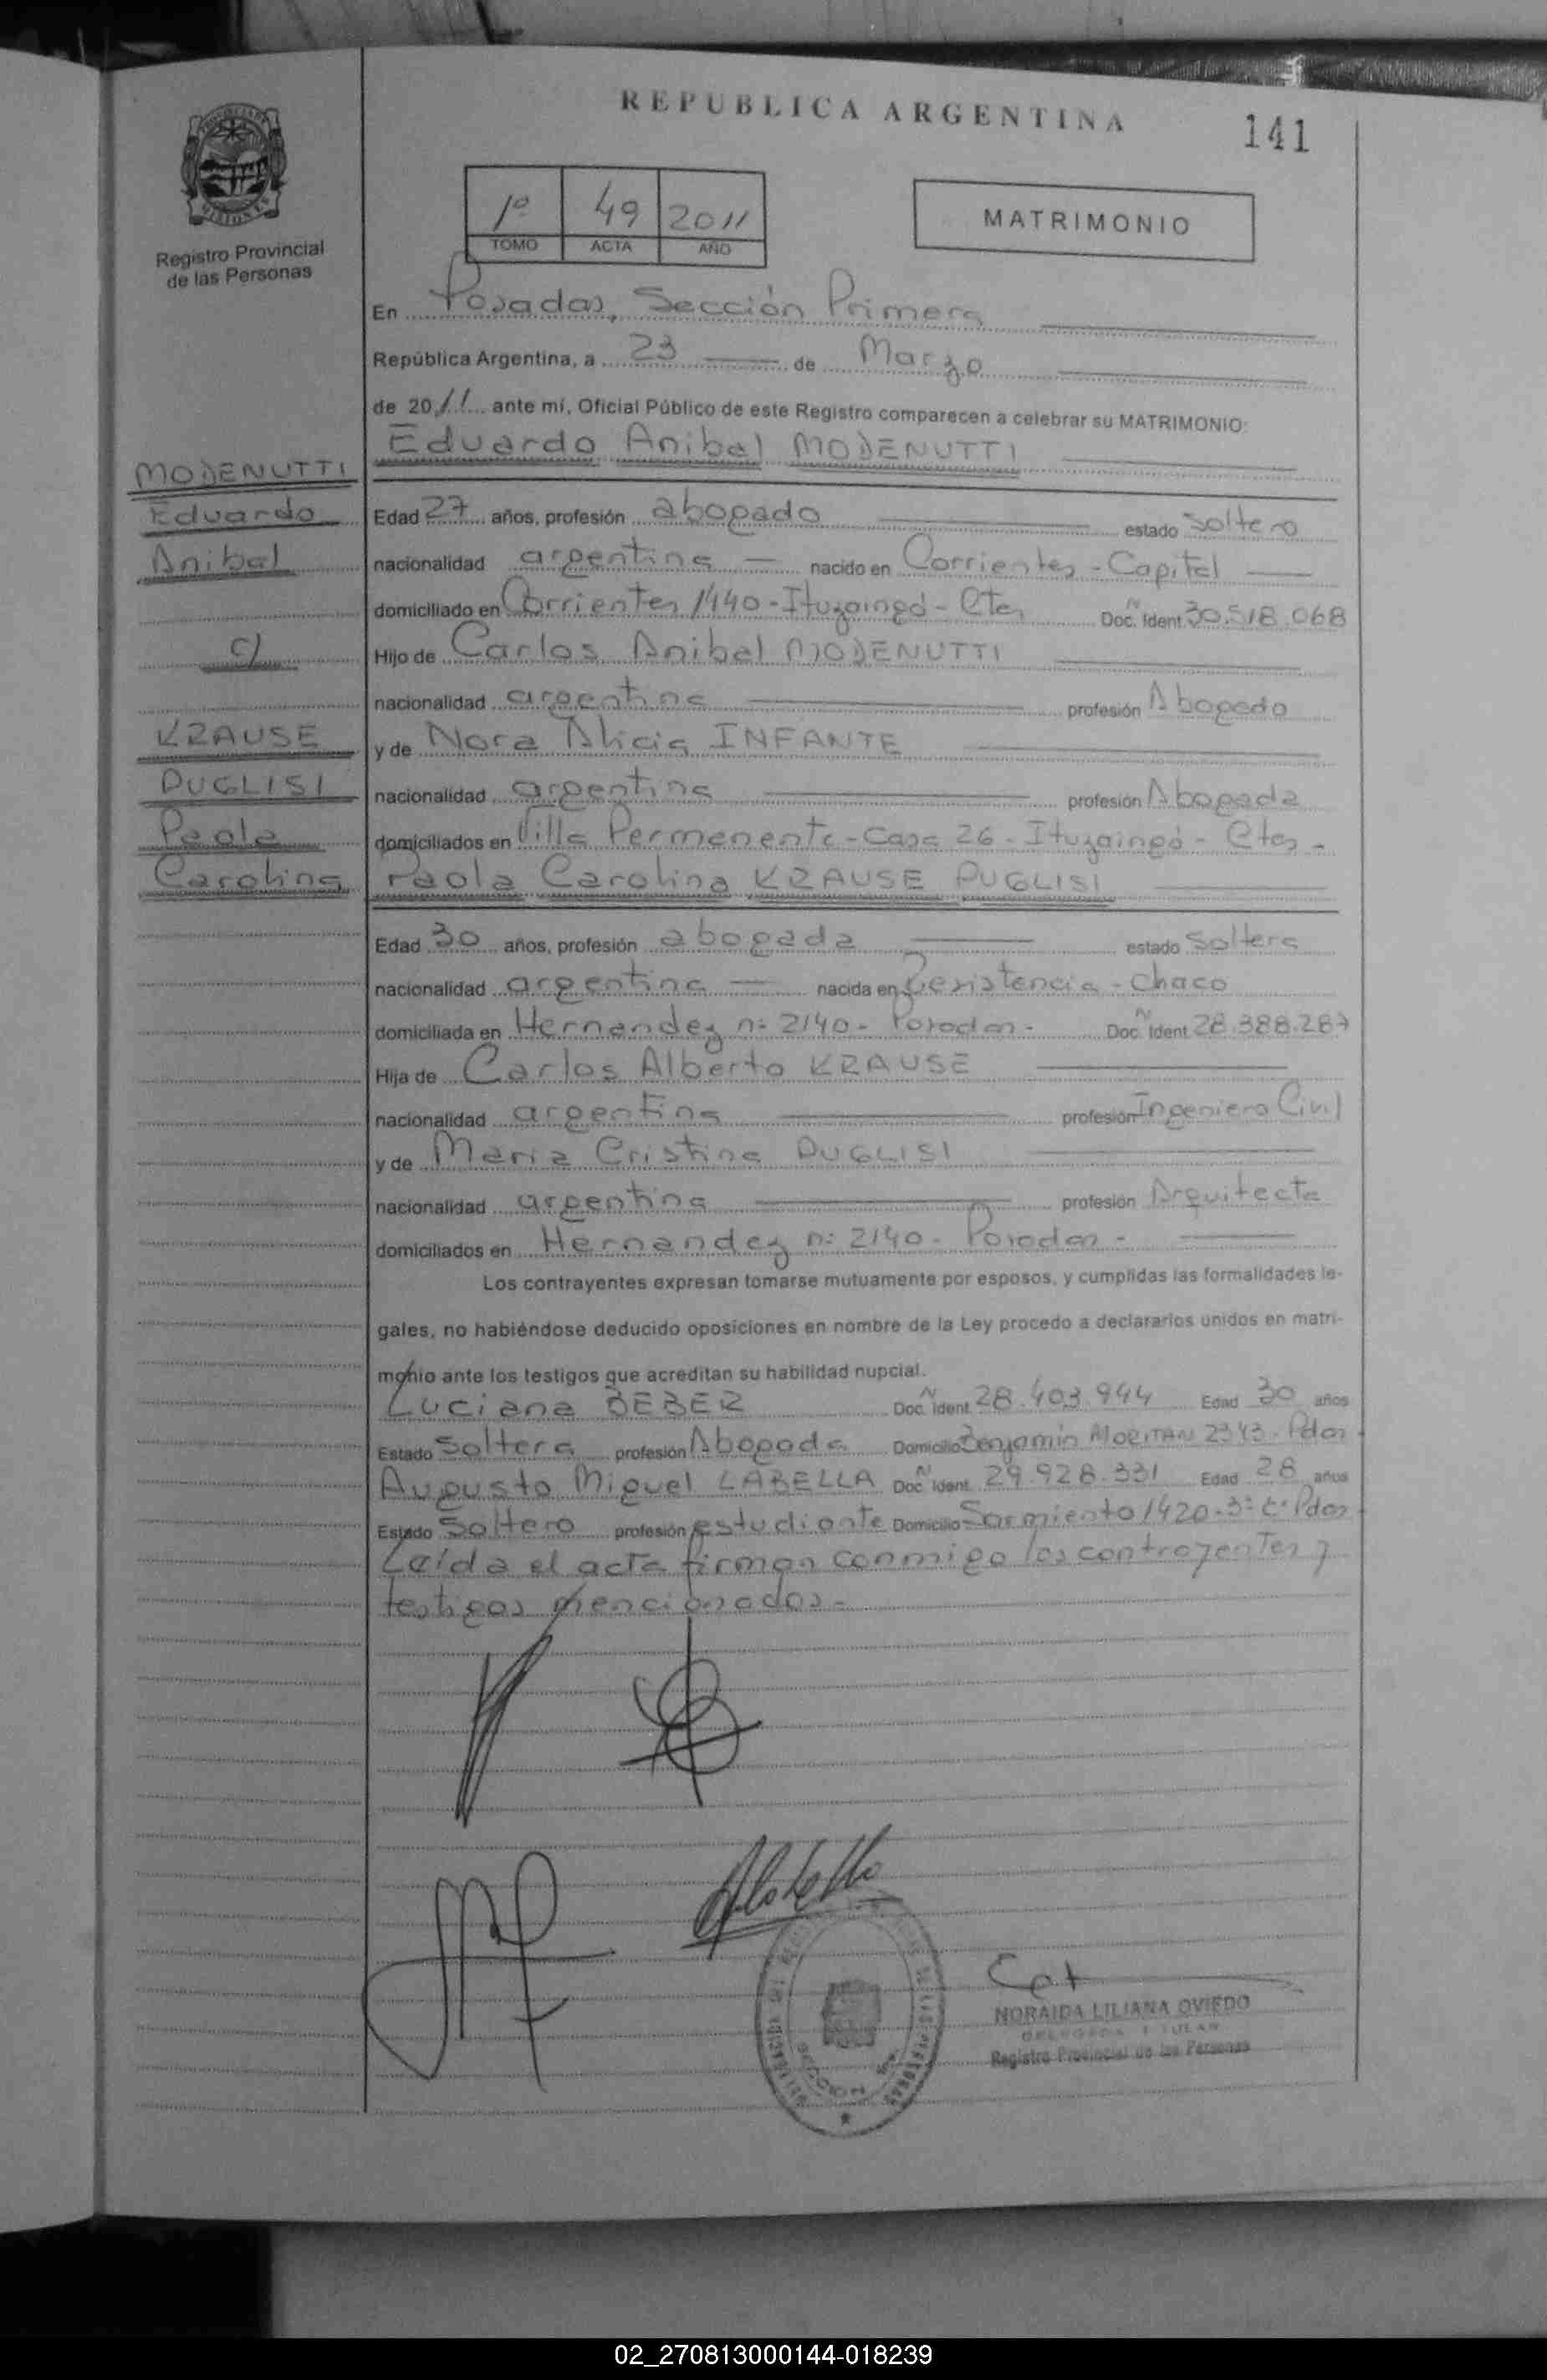 REPUBLICA ARGENTINA
141
Registro Provincial
de las Personas
1º 49 2011
TOMO ACTA AÑO
MATRIMONIO
En Posadas, Sección Primera
República Argentina, a 23 de Marzo
de 2011 ante mí, Oficial Público de este Registro comparecen a celebrar su MATRIMONIO:
Eduardo Anibal MODENUTTI
MODENUTTI
Eduardo
Anibal
c/
KRAUSE
PUGLISI
Paola
Carolina
Edad 27 años, profesión abogado estado soltero
nacionalidad argentina nacido en Corrientes - Capital
domiciliado en Corrientes 1440 - Ituzaingó - Ctes Doc. Ident. Nº 30.518.068
Hijo de Carlos Anibal MODENUTTI
nacionalidad argentina profesión Abogado
y de Nora Alicia INFANTE
nacionalidad argentina profesión Abogada
domiciliados en Villa Permanente - Casa 26 - Ituzaingó - Ctes -
Paola Carolina KRAUSE PUGLISI
Edad 30 años, profesión abogada estado soltera
nacionalidad argentina nacida en Resistencia - Chaco
domiciliada en Hernandez nº 2140 - Posadas - Doc. Ident. N 28.388.287
Hija de Carlos Alberto KRAUSE
nacionalidad argentina profesión Ingeniero Civil
y de Maria Cristina PUGLISI
nacionalidad argentina profesión Arquitecta
domiciliados en Hernandez nº 2140 - Posadas -
Los contrayentes expresan tomarse mutuamente por esposos, y cumplidas las formalidades le-
gales, no habiéndose deducido oposiciones en nombre de la Ley procedo a declararlos unidos en matri-
monio ante los testigos que acreditan su habilidad nupcial.
Luciana BEBER Doc. Ident. N 28.403.944 Edad 30 años
Estado Soltera profesión Abogada Domicilio Benjamin MORITAN 2343 - Pdas -
Augusto Miguel LABELLA Doc. Ident. N 29.928.331 Edad 28 años
Estado Soltero profesión estudiante Domicilio Sarmiento 1420 - 3º Pdas -
Leída el acta firman conmigo los contrayentes y
testigos mencionados -
NORAIDA LILIANA OVIEDO
Registro Provincial de las Personas
02_270813000144-018239